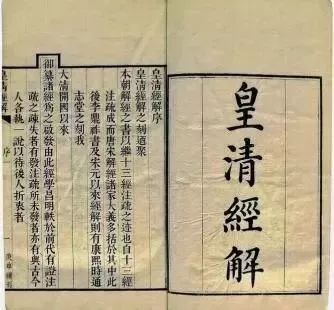 皇清經解
皇清經解序
皇清經解之刻迺聚
本朝解經之書以繼十三經注疏之迹也自十三經
注疏成而唐宋解經諸家大義多括於其中此
後李鼎祚書及宋元以來經解則有康熙時通
志堂之刻我
大清開國以來
御纂諸經為之啟發由此經學昌明軼於前代有證注
疏之疎失者有發注疏所未發者亦有與古今
人各執一說以待後人折衷者
皇清經解
序
一
庚申補刊